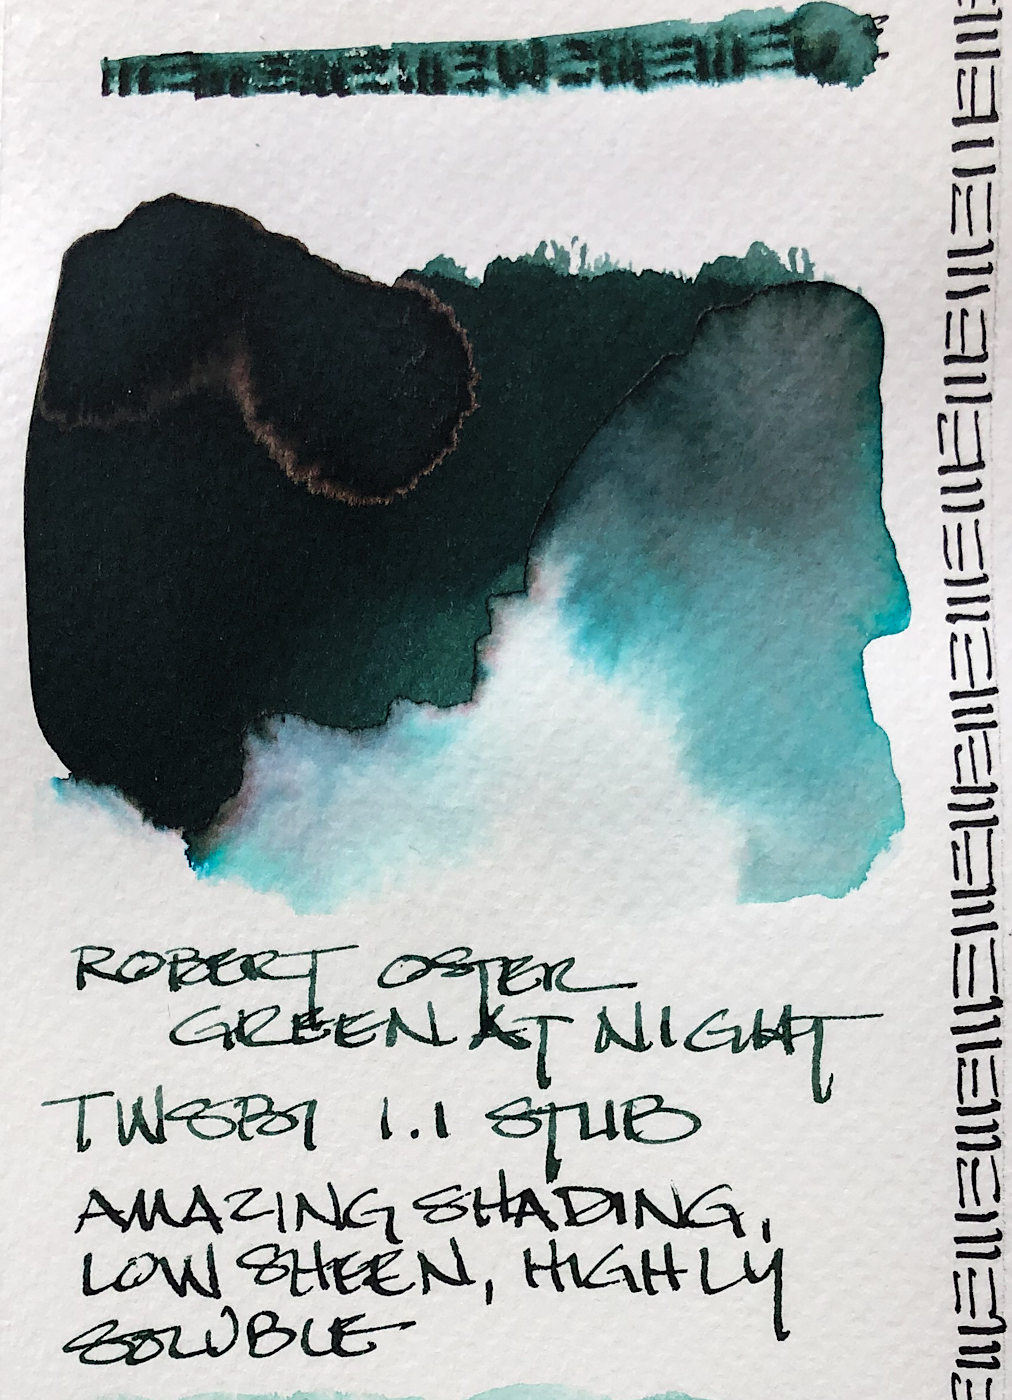 ROBERT OSTER
GREEN AT NIGHT
TWSBI 1.1 STUB
AMAZING SHADING,
LOW SHEEN, HIGHLY
SOLUBLE